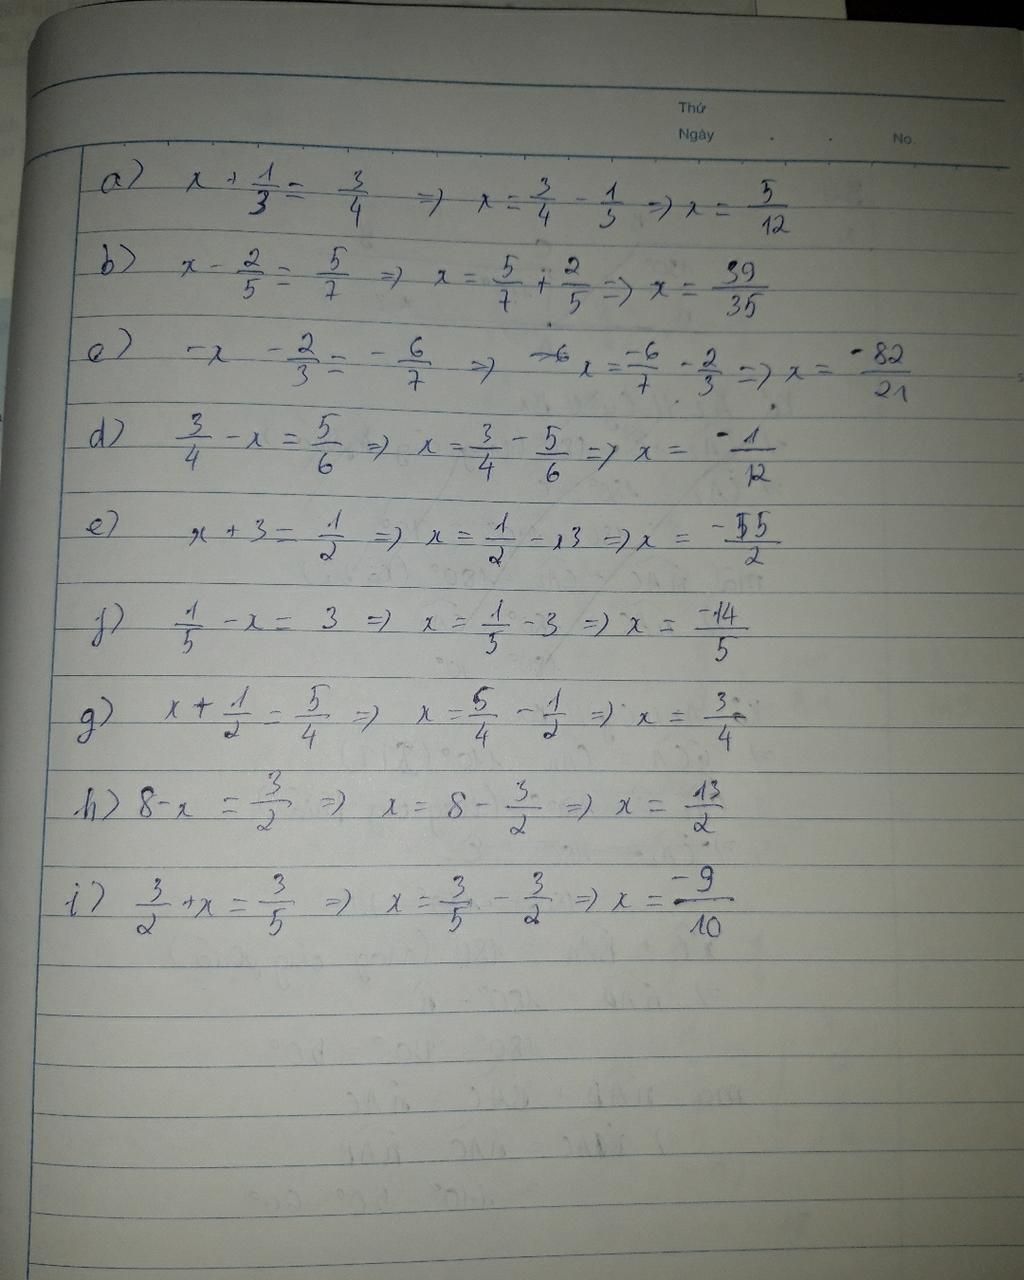 Thứ
Ngày . . No.
a) x + 1/3 = 3/4 => x = 3/4 - 1/3 => x = 5/12
b) x - 2/5 = 5/7 => x = 5/7 + 2/5 => x = 39/35
c) -x - 2/3 = - 6/7 => x = -6/7 - 2/3 => x = -82/21
d) 3/4 - x = 5/6 => x = 3/4 - 5/6 => x = -1/12
e) x + 3 = 1/2 => x = 1/2 - 3 => x = -5/2
f) 1/5 - x = 3 => x = 1/5 - 3 => x = -14/5
g) x + 1/2 = 5/4 => x = 5/4 - 1/2 => x = 3/4
h) 8 - x = 3/2 => x = 8 - 3/2 => x = 13/2
i) 3/2 + x = 3/5 => x = 3/5 - 3/2 => x = -9/10